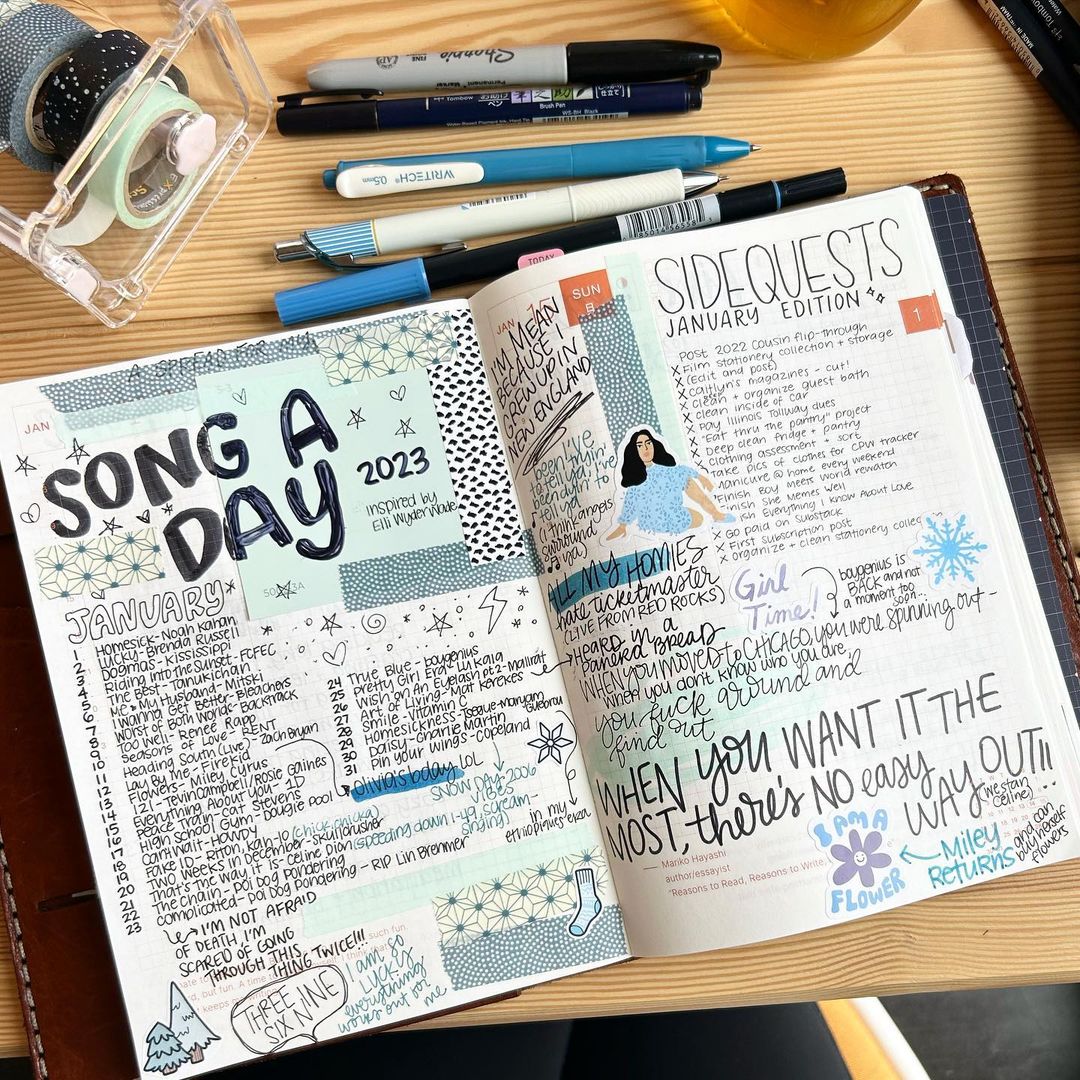 Sharpie FINE
Permanent Marker
Tombow
Brush Pen
WS-BH Black
WRITECH 0.5mm
MADE IN VIETNAM
TODAY
A SPREAD FOR
JAN
SONG A
DAY
2023
inspired by
JANUARY
1 Homesick - Noah Kahan
2 Lucky - Brenda Russell
3 Dogmas - KISSISSIPPI
4 Riding into the Sunset - FCFEC
5 The Best - Tanukichan
6 Me + My Husband - Mitski
7 I Wanna Get Better - Bleachers
8 Worst of Both Worlds - Backtrack
9 TOO WELL - Reneé Rapp
10 Seasons of Love - RENT
11 Heading South (Live) - Zach Bryan
12 Law By Me - FireKid
13 Flowers - Miley Cyrus
14 I2I - Tevin Campbell/Rosie Gaines
15 Everything About You - 1D
16 Peace Train - Cat Stevens
17 High School Gum - Dougie Pool
18 Can't Wait - HOWDY
19 Fake ID - Riton, Kah-Lo (chick chicka)
20 Two Weeks in December - Skullcrusher
21 That's the way it is - Celine Dion (speeding down I-49, scream-singing)
22 The Chain - Poi Dog Pondering - RIP Lin Brehmer
23 Complicated - Poi Dog Pondering
24 True Blue - boygenius
25 Pretty Girl Era - Lu Kala
26 Wish on An Eyelash pt 2 - mallrat
27 Art of Living - Mat Kerekes
28 Smile - Vitamin C
29 Homesickness - Tsegue-Maryam Guebrou
30 Daisy - Charlie Martin
31 Pin your Wings - Copeland
Olivia's bday LOL
SNOW DAY 2006 VIBES
in my
éthiopiques era
I'M NOT AFRAID
OF DEATH I'M
SCARED OF GOING
THROUGH THIS
THING TWICE!!!
such fun.
THREE NINE
SIX NINE
I am so
LUCKY
everything
works out for
me
JAN 1 SUN
I'M MEAN
BECAUSE I
GREW UP IN
NEW ENGLAND
been tryin'
to tell ya I've
been dyin' to
tell ya
(I think angels
surround
ya)
ALL MY HOMIES
hate ticketmaster
(LIVE FROM RED ROCKS)
HEARD IN A
Panera Bread
WHEN YOU MOVED TO CHICAGO, you were spinning out -
When you don't know who you are
you fuck around and
find out
Girl
Time!
boygenius is
BACK and not
a moment too
soon
WHEN you WANT IT THE
MOST, there's NO easy
WAY OUT!!
(we stan
Celine)
SIDEQUESTS
JANUARY EDITION
1
Post 2022 Cousin flip-through
X Film stationery collection + storage
X (Edit and post)
X Caitlyn's magazines - cut!
X Clean + organize guest bath
X Clean inside of car
X Pay Illinois Tollway dues
X "Eat thru the pantry" project
X Deep clean fridge + pantry
X Clothing assessment + sort
X Take pics of clothes for CPW tracker
X Manicure @ home every weekend
Finish Boy Meets World rewatch
Finish She Memes Well
I Know About Love
X Go paid on Substack
X First subscription post
X Organize + clean stationery
— Mariko Hayashi
author/essayist
"Reasons to Read, Reasons to Write,
I AM A
FLOWER
MILEY
RETURNS
and can
buy herself
flowers